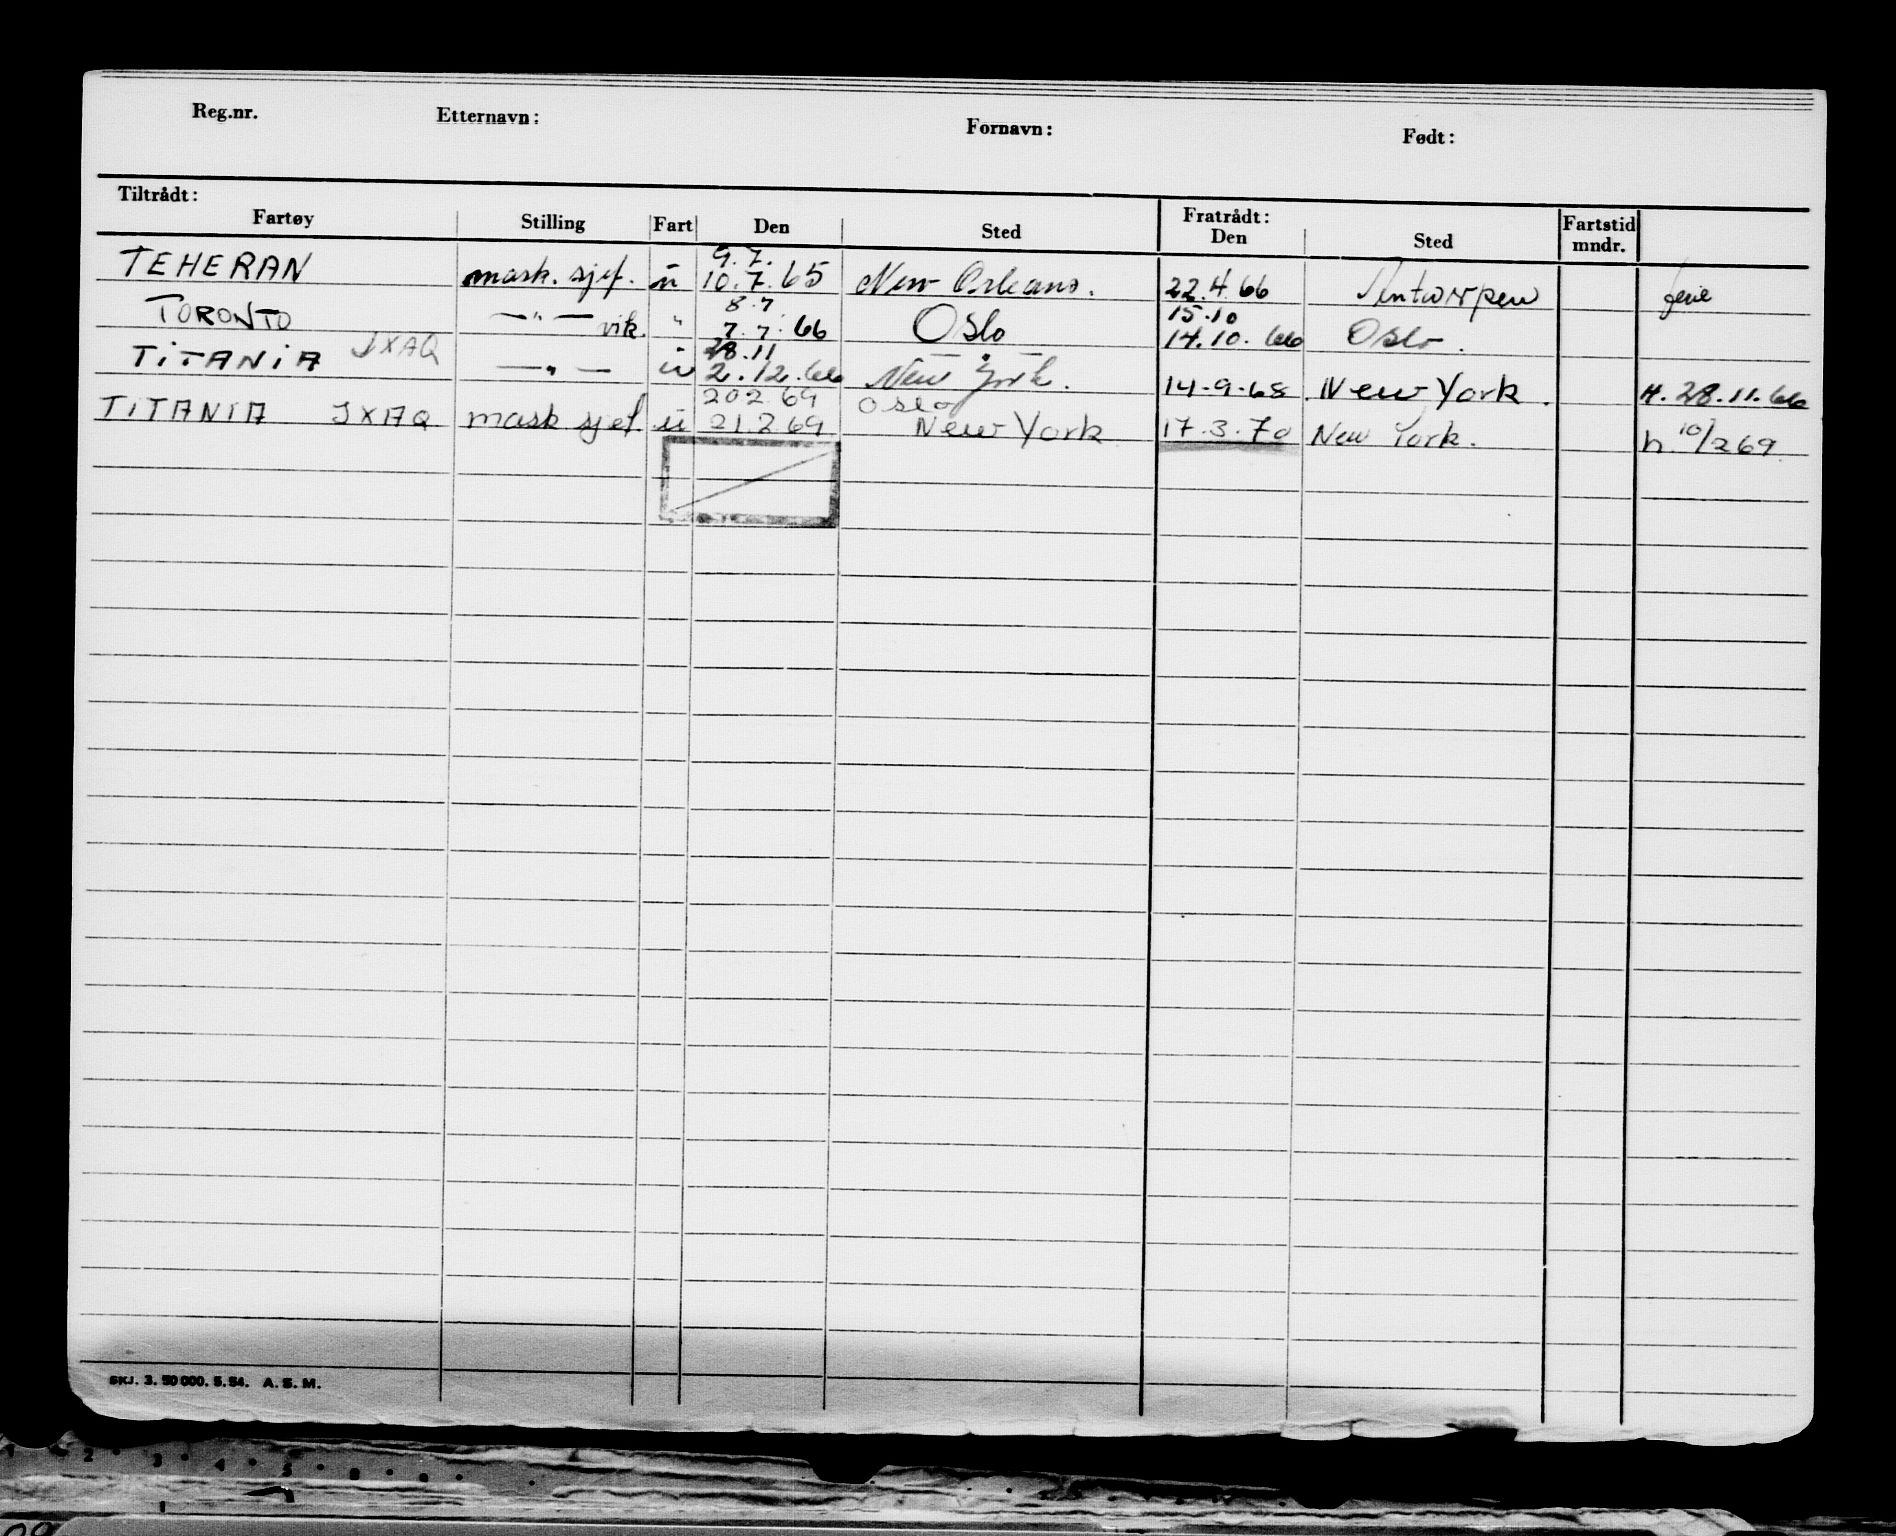 Reg.nr. Etternavn: Fornavn: Født:
Tiltrådt: Fratrådt: Fartstid
Fartøy Stilling Fart Den Sted Den Sted mndr.
9.7.
TEHERAN mask. sjef. u 10.7.65 New Orleans. 22.4.66 Antwerpen ferie
8.7 15.10
TORONTO —"— vik. " 7.7.66 Oslo 14.10.66 Oslo.
28.11 — " —
TiTANiA JXAQ —"— u 2.12.66 New York. 14-9-68 New York. H. 28.11.66
20 2 69 Oslo
TiTANIA JXAQ mask sjef u 21.2 69 New York 17.3.70 New York. h. 10/2 69
SKJ. 3. 50 000. 5.54. A. S. M.
2 3 4 5